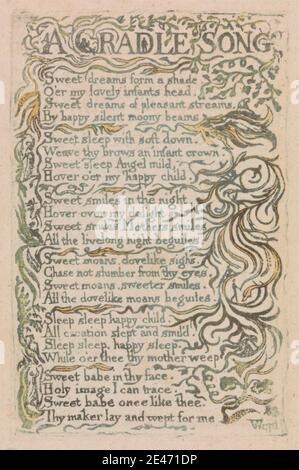 A CRADLE SONG
Sweet dreams form a shade
O'er my lovely infants head.
Sweet dreams of pleasant streams.
By happy silent moony beams
Sweet sleep with soft down.
Weave thy brows an infant crown.
Sweet sleep Angel mild,
Hover o'er my happy child.
Sweet smiles in the night
Hover over my delight.
Sweet smiles Mothers smiles
All the livelong night beguiles.
Sweet moans, dovelike sighs.
Chase not slumber from thy eyes,
Sweet moans, sweeter smiles
All the dovelike moans beguiles.
Sleep sleep happy child.
All creation slept and smil'd.
Sleep sleep, happy sleep.
While o'er thee thy mother weep
Sweet babe in thy face
Holy image I can trace.
Sweet babe once like thee.
Thy maker lay and wept for me
Wept
alamy
Image ID: 2E471DP
www.alamy.com